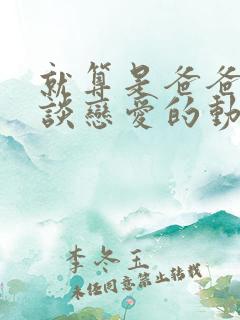 就算是爸爸
談戀愛的動
李冬玉
未經同意禁止轉載